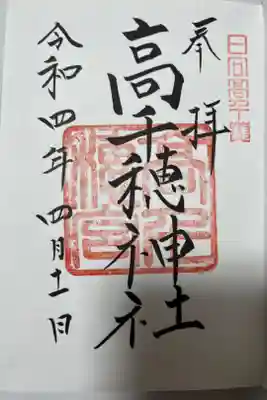 日向高千穂
奉拝
高千穂神社
令和四年四月十一日